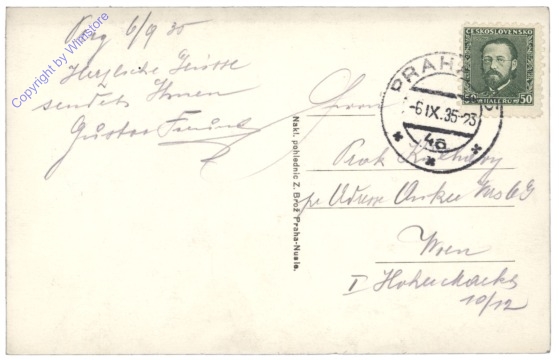 Prg 6/9 35
Herzliche Grüsse
sendet Ihnen
Gustav
Copyright by Whlstore
Nakl. pohlednic Z. Brož Praha-Nusle.
ČESKOSLOVENSKO
50 HALÉŘŮ 50
PRAHA
-6.IX.35-23
46
Herrn
Prok
Wien
I Hoher Markt
10/12